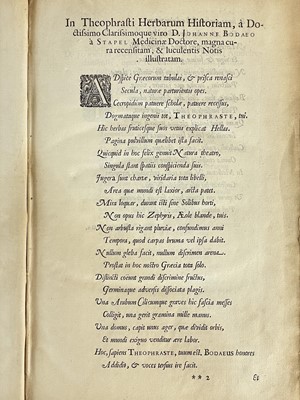 In Theophrasti Herbarum Historiam, à Do-
ctissimo Clarissimoque viro D. JOHANNE BODAEO
à STAPEL Medicinæ Doctore, magna cu-
ra recensitam, & luculentis Notis
illustratam.
ADspice Græcorum tabulas, & prisca renasci
Secula, naturæ parturientis opes.
Cecropidúm patuere scholæ, patuere recessus,
Dogmataque ingenii tot, THEOPHRASTE, tui.
Hic herbas fruticesque suos vetus explicat Hellas.
Pagina pulvillum quælibet ista facit.
Quicquid in hoc felix germit Natura theatro,
Singula stant spatiis conspicienda suis.
Jugera sunt chartæ, viridaria tota libelli,
Area quæ mundi est laxior, arcta patet.
Mira loquar, durant isti sine Solibus horti,
Non opus hic Zephyris, Æole blande, tuis.
Non arbusta rigant pluviæ, consuadimus anni
Tempora, quod carpas bruma vel ipsa dabit.
Nullum gleba facit, nullum discrimen arena.
Prostat in hoc nostro Græcia tota solo.
Distincti coëunt grandi discrimine fructus,
Germinaque adversis dissociata plagis.
Una Arabum Cilicumque graves hic fascia messes
Colligit, una gerit gramina mille manus.
Una domus, capit unus ager, quæ dividit orbis,
Et mundi exiguo venditur ære labor.
Hoc, sapiens THEOPHRASTE, tuum est, BODAEUS honores
Addidit, & voces tersius ire facit.
** 2
Et